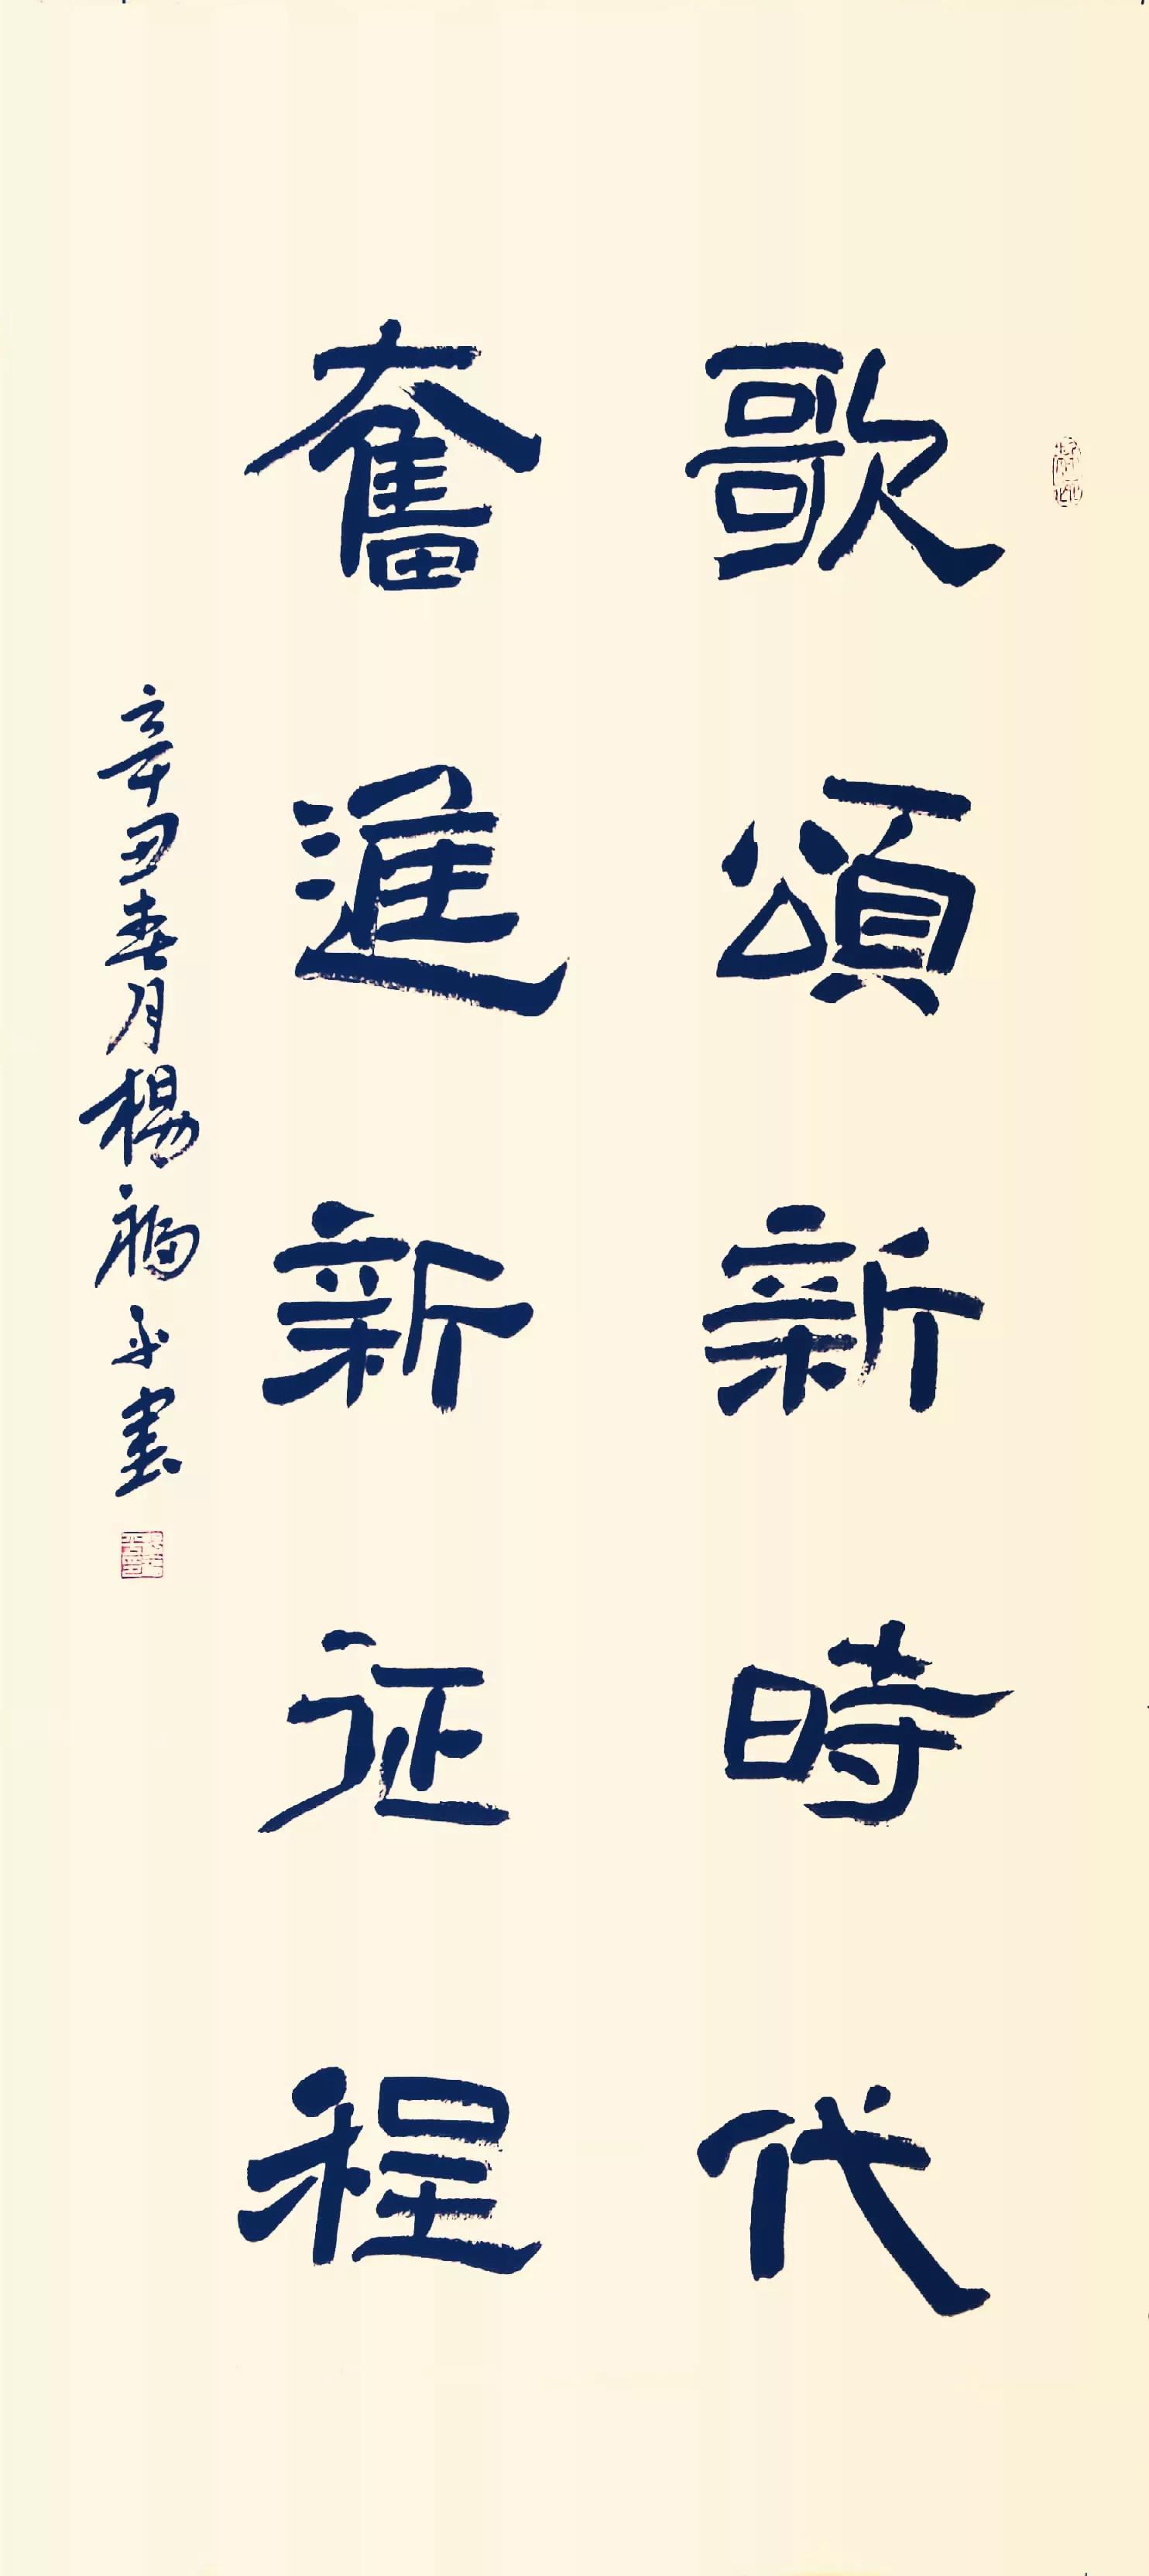 歌頌新時代
奮進新征程
辛丑春月楊福平書